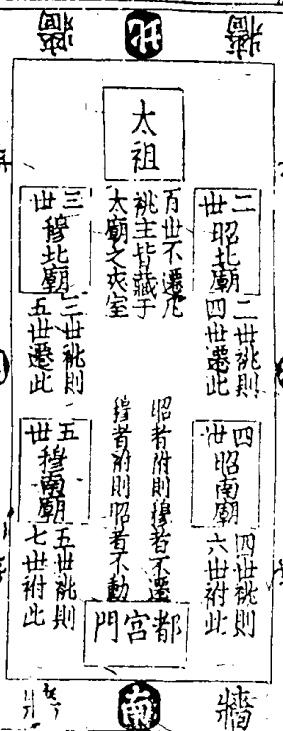 牆 北 牆
太祖
百世不遷凡
祧主皆藏于
太廟之夾室
二世昭北廟
二世祧則
四世遷此
三世穆北廟
三世祧則
五世遷此
昭者祔則穆者不遷
穆者祔則昭者不動
四世昭南廟
四世祧則
六世祔此
五世穆南廟
五世祧則
七世祔此
都宮門
牆 南